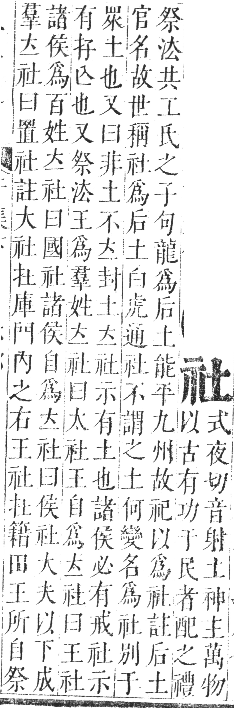 社
式夜切音射土神主萬物
以古有功于民者配之禮
祭法共工氏之子句龍爲后土能平九州故祀以爲社註后土
官名故世稱社爲后土白虎通社不謂之土何變名爲社別于
衆土也又曰非土不立封土立社示有土也諸侯必有戒社示
有存亡也又祭法王爲羣姓立社曰太社王自爲立社曰王社
諸侯爲百姓立社曰國社諸侯自爲立社曰侯社大夫以下成
羣立社曰置社註大社在庫門內之右王社在籍田王所自祭